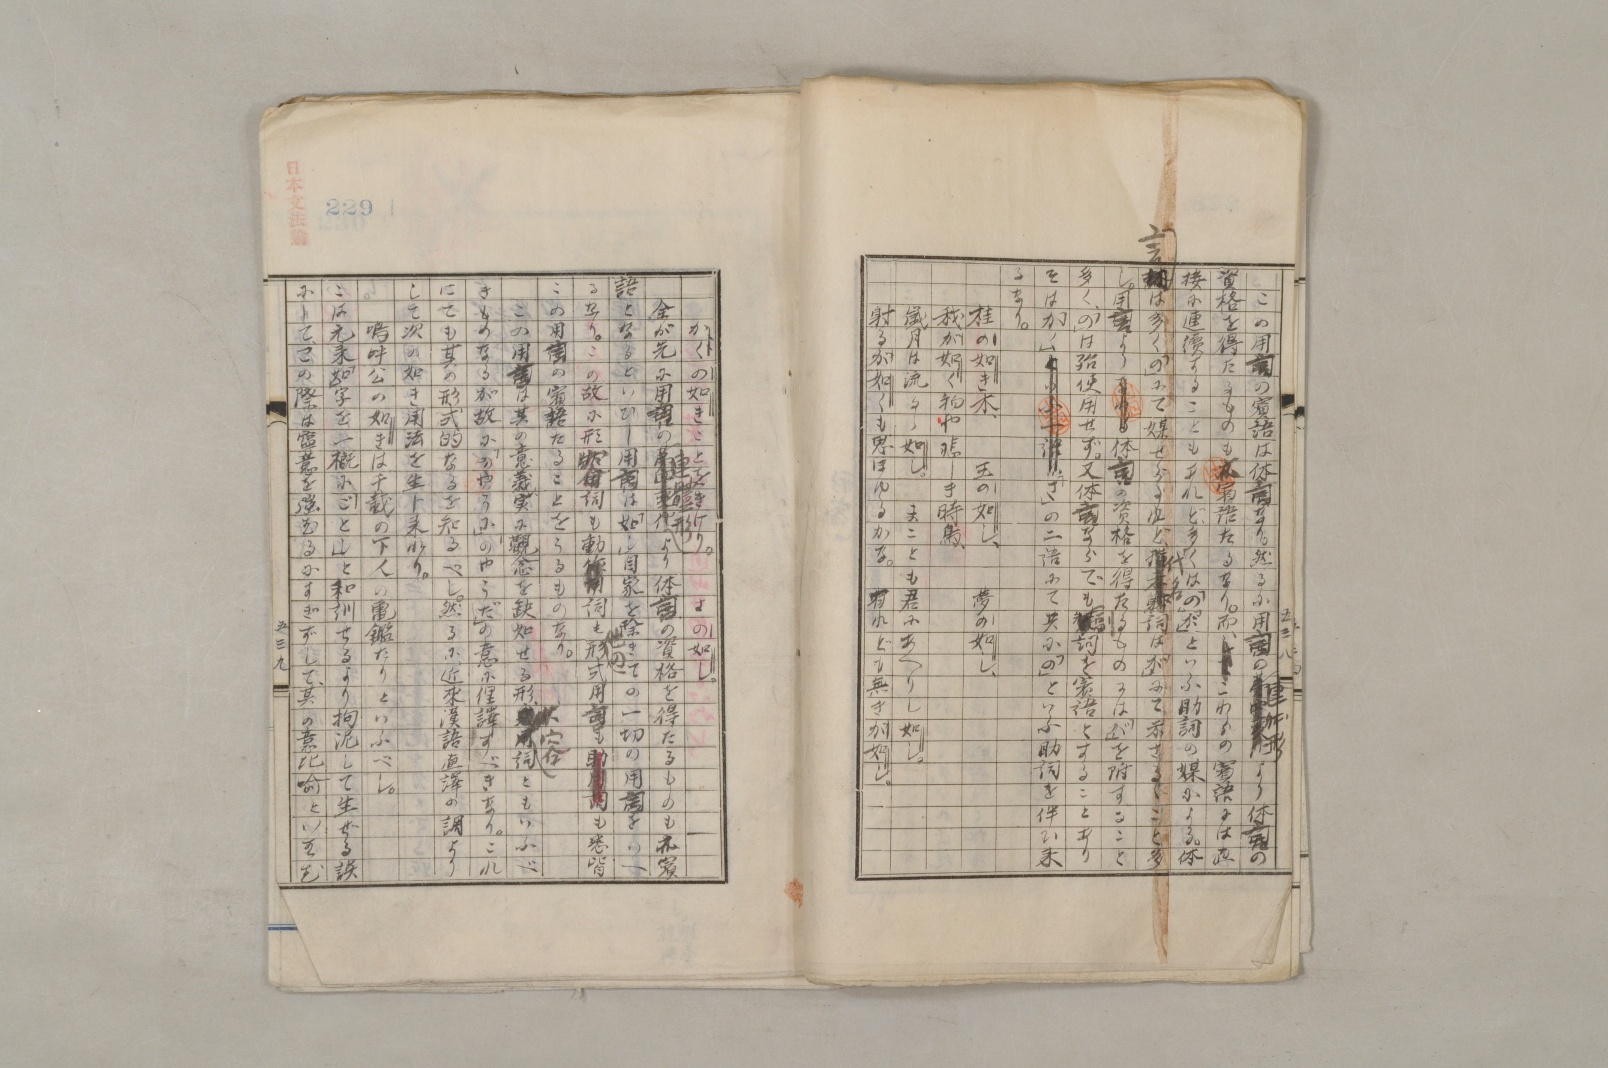 この用言の賓語は体言なり。然るに用言の連体形より体言の
資格を得たるものも亦賓語たるなり。而してこれらの賓語には直
接に連續することもあれど多くは「の」「が」といふ助詞の媒による。体
言は多く「の」にて媒せらるれど、代名詞は「が」にて示さるること多
し。用言より体言の資格を得たるものには「が」を附すること
多く、「の」は殆使用せず。又体言ならでも副詞を賓語とすることあり
そは「か」「さ」の二語にて共に「の」といふ助詞を伴ひ來
るなり。
桂の如き木、　玉の如し、　夢の如し、
我が如く物や悲しき時鳥、
歳月は流るゝ如し。　まことも君にあへりし如し。
射るが如くも思ほゆるかな。　有れども無きが如し。
五三八
かくの如きことを聞けり。　さの如し。
余が先に用言の連體形より体言の資格を得たるものも亦賓
語となるといひし用言は「如し」自家を除きての一切の用言をいへ
るなり。この故に形容詞も動詞も形式用言も悉皆
この用言の賓語たることをうるものなり。
この用言は其の意義実に觀念を缺如せる形容詞ともいふべ
きものなるが故に「かやうに」の「やうだ」の意に俚譯すべきなり。これ
にても其の形式的なるを知るべし。然るに近來漢語直譯の調より
して次の如き用法を生じ來れり。
嗚呼公の如きは千載の下人の龜鑑たりといふべし。
こは元來「如」字を一概に「ごとし」と和訓せるより拘泥して生ぜる誤
にして己の際は意を強むるにすぎずして、其の意比喩といはむ
五三九
日本文法論
229